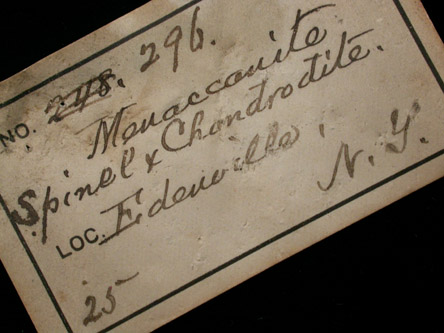 NO. 248. 296.
Menaccanite
Spinel & Chondrodite.
LOC. Edenville,
N. Y.
25